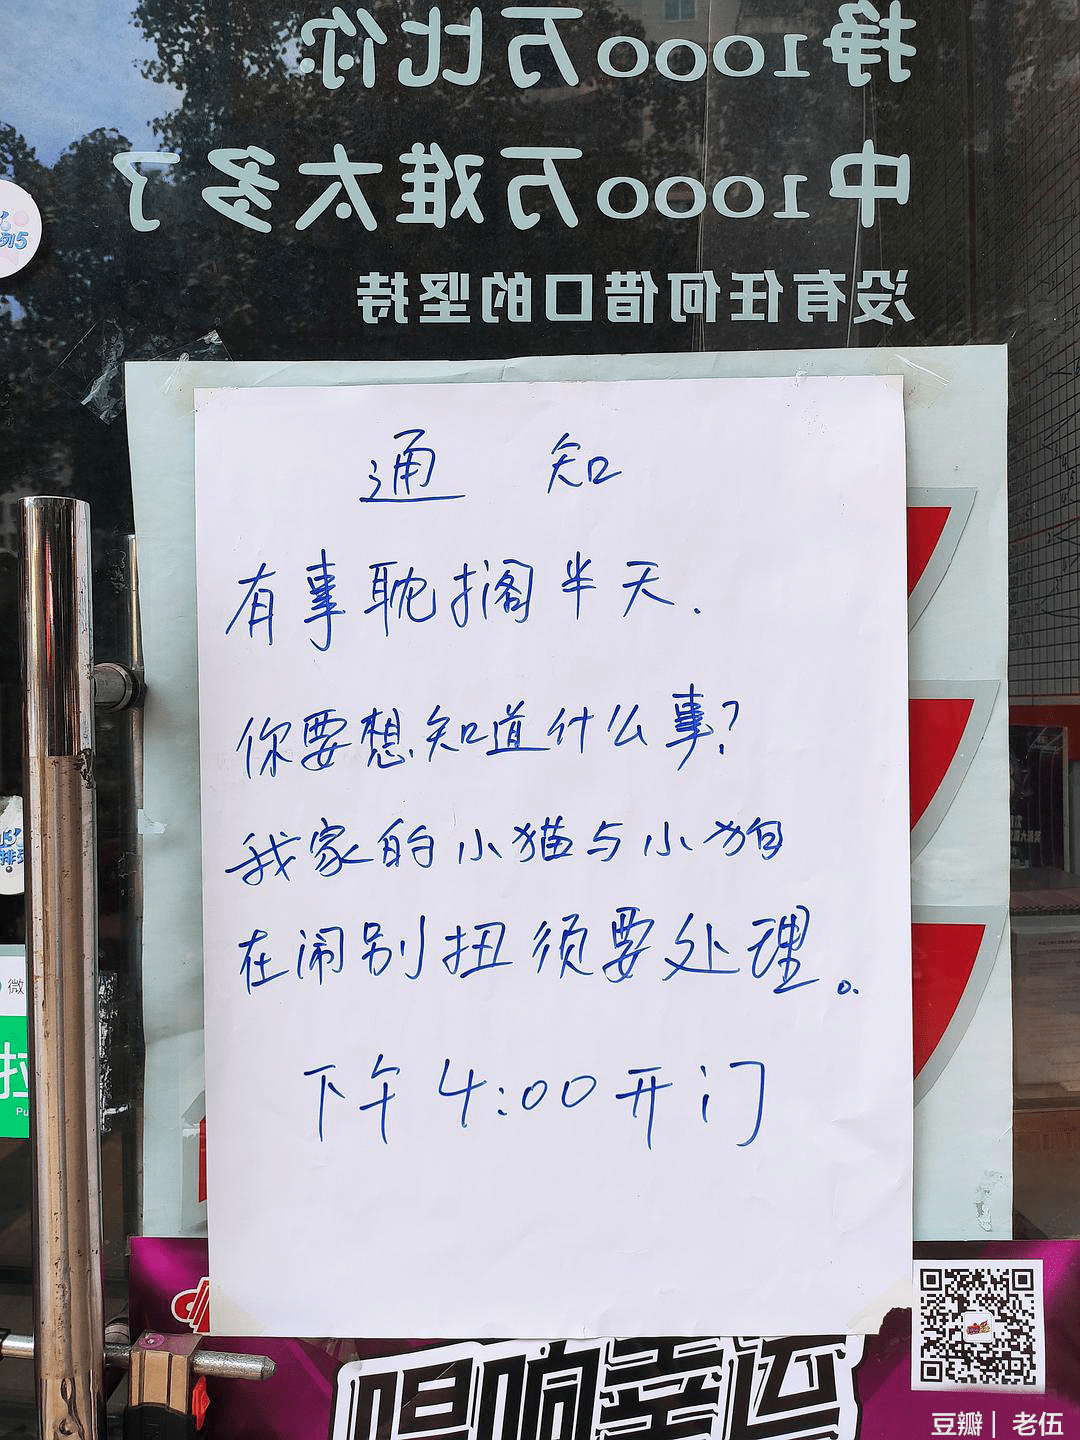 挣1000万比你
中1000万难太多了
没有任何借口的坚持
列5
通 知
有事耽搁半天.
你要想知道什么事?
我家的小猫与小狗
在闹别扭须要处理。
下午4:00开门
排列
微
拉
Pu
唱响幸运
豆瓣 | 老伍